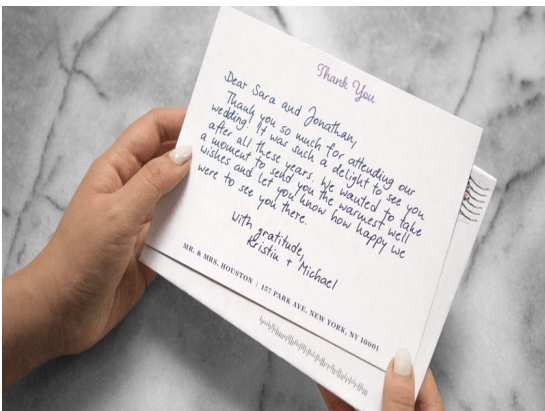 Thank You
Dear Sara and Jonathan,
Thank you so much for attending our
wedding! It was such a delight to see you
after all these years. We wanted to take
a moment to send you the warmest well
wishes and let you know how happy we
were to see you there.
With gratitude,
Kristin + Michael
MR. & MRS. HOUSTON | 157 PARK AVE. NEW YORK, NY 10001